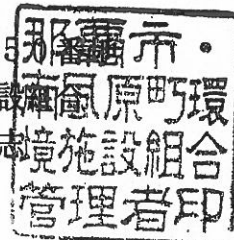 5
設
志
那覇市・
南風原町環
境施設組合
管理者印